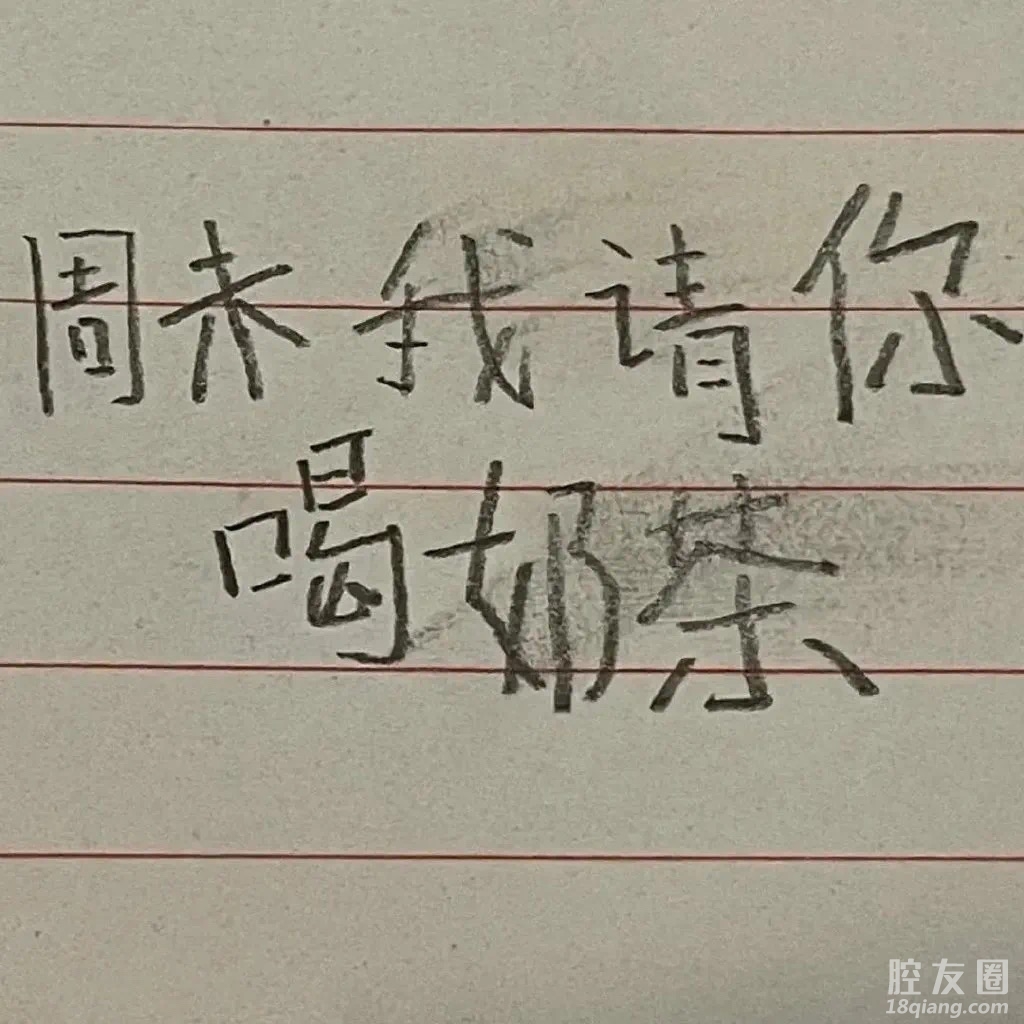 周末我请你
喝奶茶
腔友圈
18qiang.com